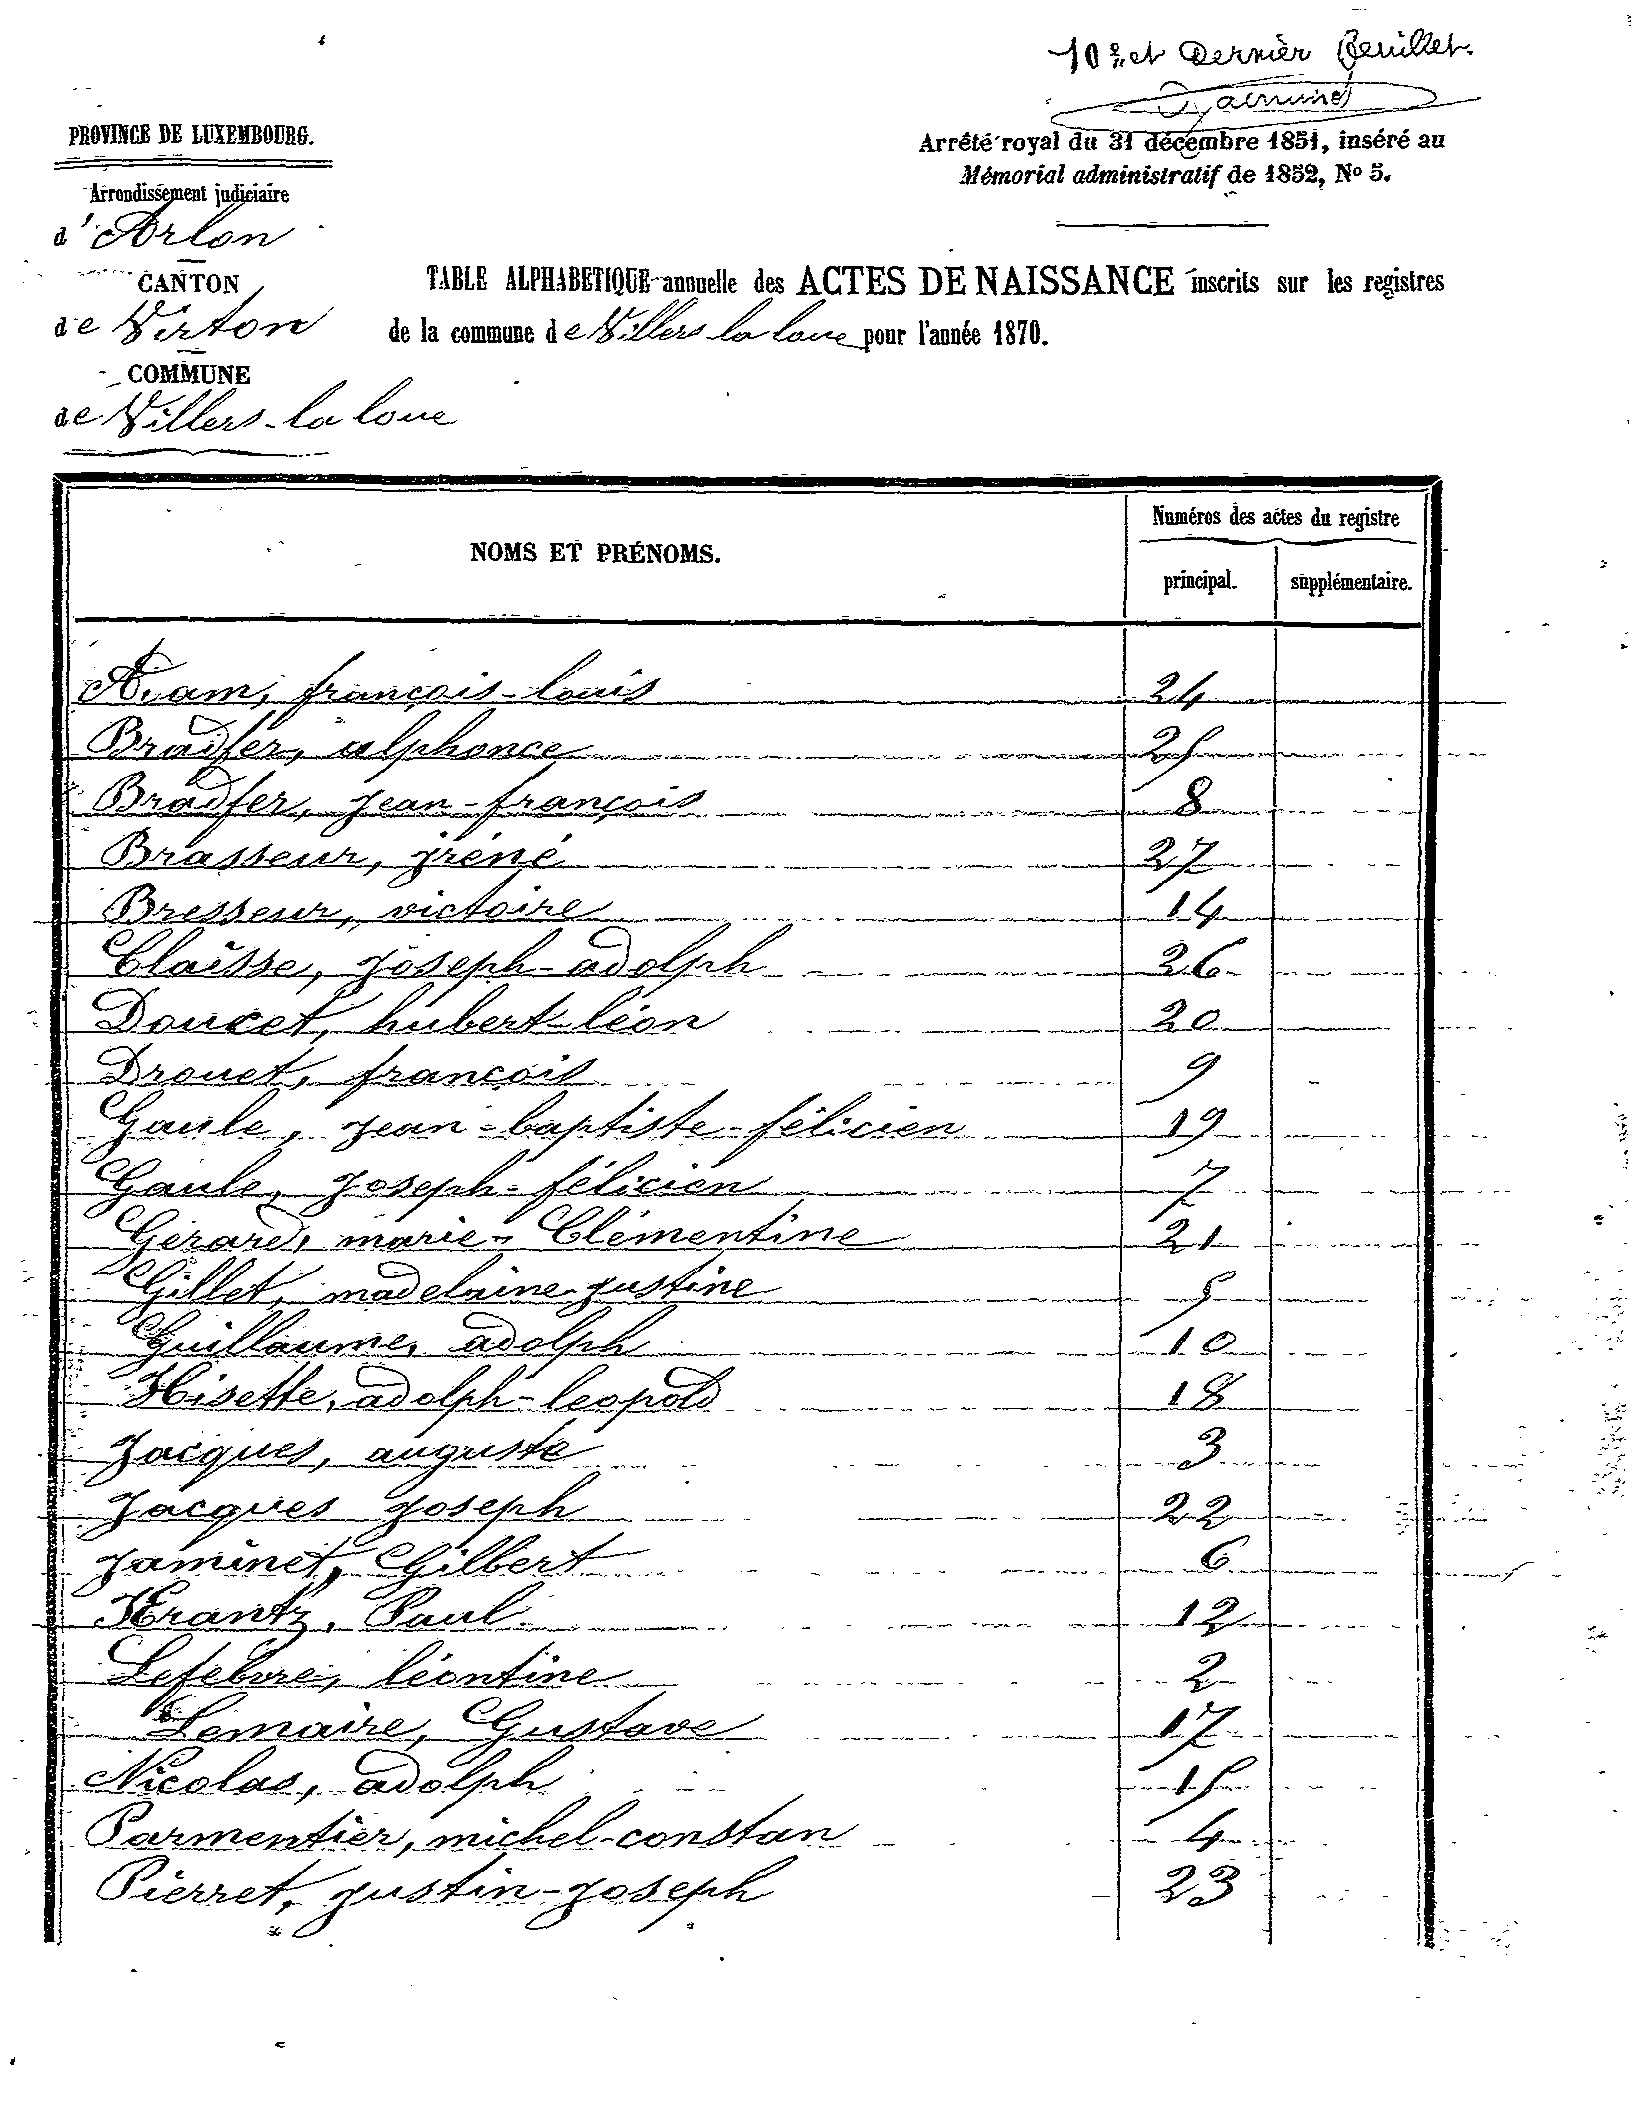 10e et Dernier feuillet.
PROVINCE DE LUXEMBOURG.
Arrêté royal du 31 décembre 1851, inséré au
Mémorial administratif de 1852, No 5.
Arrondissement judiciaire
d'Arlon
CANTON
de Virton
TABLE ALPHABETIQUE annuelle des ACTES DE NAISSANCE inscrits sur les registres
de la commune de Villers-la loue pour l'année 1870.
COMMUNE
de Villers-la loue
NOMS ET PRÉNOMS.
Numéros des actes du registre
principal. supplémentaire.
françois-louis 24
Bradfer, alphonce 25
Bradfer, jean-françois 8
Brasseur, jréné 27
Bresseur, victoire 14
Claisse, joseph-adolph 26
Doucet, hubert-léon 20
Drouet, françois 9
Gaule, jean-baptiste-félicien 19
Gaule, joseph-félicien 7
Gérard, marie-Clémentine 21
Gillet, madelaine-justine 5
Guillaume, adolph 10
Hisette, adolph-leopold 18
Jacques, auguste 3
Jacques joseph 22
Jaminet, Gilbert 6
Krantz, Paul 12
Lefebvre, léontine 2
Lemaire, Gustave 17
Nicolas, adolph 15
Parmentier, michel-constan 4
Pierret, justin-joseph 23